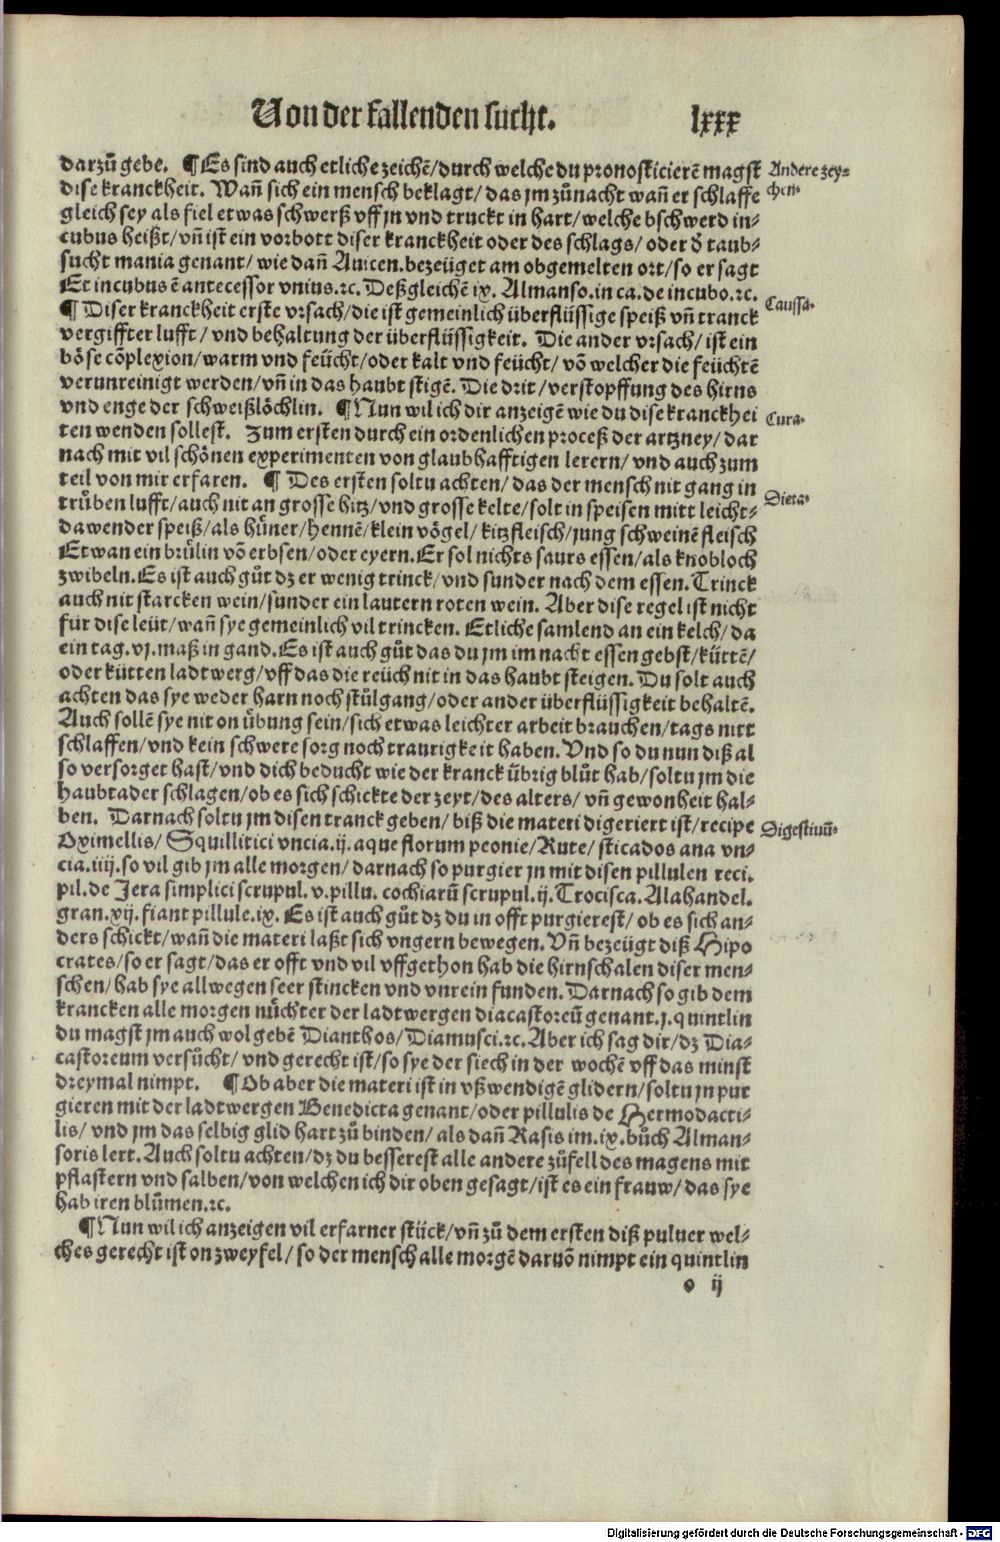 Von der fallenden sucht. lxxx
darzů gebe. ¶ Es sind auch etliche zeichẽ/durch welche du pronosticierẽ magst
Andere zey-
chen-
dise kranckheit. Wañ sich ein mensch beklagt/das jm zůnacht wañ er schlaffe
gleich sey als fiel etwas schwerß vff jn vnd truckt in hart/welche bschwerd in-
cubus heißt/vñ ist ein vorbott diser kranckheit oder des schlags/oder d̕ taub-
sucht mania genant/wie dañ Auicen.bezeüget am obgemelten ort/so er sagt
Et incubus ẽ antecessor vnius.ꝛc. Deßgleichẽ ix. Almanso.in ca.de incubo.ꝛc.
¶ Diser kranckheit erste vrsach/die ist gemeinlich überflüssige speiß vñ tranck
Caussa-
vergiffter lufft/vnd behaltung der überflüssigkeit. Die ander vrsach/ist ein
böse cõplexion/warm vnd feücht/oder kalt vnd feücht/võ welcher die feüchtẽ
verunreinigt werden/vñ in das haubt stigẽ. Die drit/verstopffung des hirns
vnd enge der schweißlöchlin. ¶ Nun wil ich dir anzeigẽ wie du dise kranckhei
Cura-
ten wenden sollest. Zum ersten durch ein ordenlichen proceß der artzney/dar
nach mit vil schönen experimenten von glaubhafftigen lerern/vnd auch zum
teil von mir erfaren. ¶ Des ersten soltu achten/das der mensch nit gang in
Dieta-
trüben lufft/auch nit an grosse hitz/vnd grosse kelte/solt in speisen mitt leicht-
dawender speiß/als hüner/hennẽ/klein vögel/kitzfleisch/jung schweinẽ fleisch
Etwan ein brülin võ erbsen/oder eyern. Er sol nichts saurs essen/als knobloch
zwibeln. Es ist auch gůt dz er wenig trinck/vnd sunder nach dem essen. Trinck
auch nit starcken wein/sunder ein lautern roten wein. Aber dise regel ist nicht
für dise leüt/wañ sye gemeinlich vil trincken. Etliche samlend an ein kelch/da
ein tag.vj.maß in gand. Es ist auch gůt das du jm im nacht essen gebst/küttẽ/
oder kütten ladtwerg/vff das die reüch nit in das haubt steigen. Du solt auch
achten das sye weder harn noch stůlgang/oder ander überflüssigkeit behaltẽ.
Auch sollẽ sye nit on übung sein/sich etwas leichter arbeit brauchen/tags nitt
schlaffen/vnd kein schwere sorg noch traurigkeit haben. Vnd so du nun diß al
so versorget hast/vnd dich beducht wie der kranck übrig blůt hab/soltu jm die
haubtader schlagen/ob es sich schickte der zeyt/des alters/vñ gewonheit hal-
ben. Darnach soltu jm disen tranck geben/biß die materi digeriert ist/recipe
Digestiuũ-
Oximellis/Squillitici vncia.ij.aque florum peonie/Rute/sticados ana vn-
cia.iiij.so vil gib jm alle morgen/darnach so purgier jn mit disen pillulen reci.
pil.de Jera simplici scrupul.v.pillu. cochiarũ scrupul.ij.Trocisca.Alahandel.
gran.xij.fiant pillule.ix. Es ist auch gůt dz du in offt purgierest/ob es sich an-
ders schickt/wañ die materi laßt sich vngern bewegen. Vñ bezeügt diß Hipo
crates/so er sagt/das er offt vnd vil vffgethon hab die hirnschalen diser men-
schen/hab sye allwegen seer stincken vnd vnrein funden. Darnach so gib dem
krancken alle morgen nüchter der ladtwergen diacastoreũ genant.j.quintlin
du magst jm auch wol gebẽ Dianthos/Diamusci.ꝛc. Aber ich sag dir/dz Dia-
castoreum versücht/vnd gerecht ist/so sye der siech in der wochẽ vff das minst
dreymal nimpt. ¶ Ob aber die materi ist in vßwendigẽ glidern/soltu jn pur
gieren mit der ladtwergen Benedicta genant/oder pillulis de Hermodacti-
lis/vnd jm das selbig glid hart zů binden/als dañ Rasis im.ix.bůch Alman-
soris lert. Auch soltu achten/dz du besserest alle andere zůfell des magens mit
pflastern vnd salben/von welchen ich dir oben gesagt/ist es ein frauw/das sye
hab iren blůmen.ꝛc.
¶ Nun wil ich anzeigen vil erfarner stück/vñ zů dem ersten diß puluer wel-
ches gerecht ist on zweyfel/so der mensch alle morgẽ daruõ nimpt ein quintlin
o ij
Digitalisierung gefördert durch die Deutsche Forschungsgemeinschaft - DFG